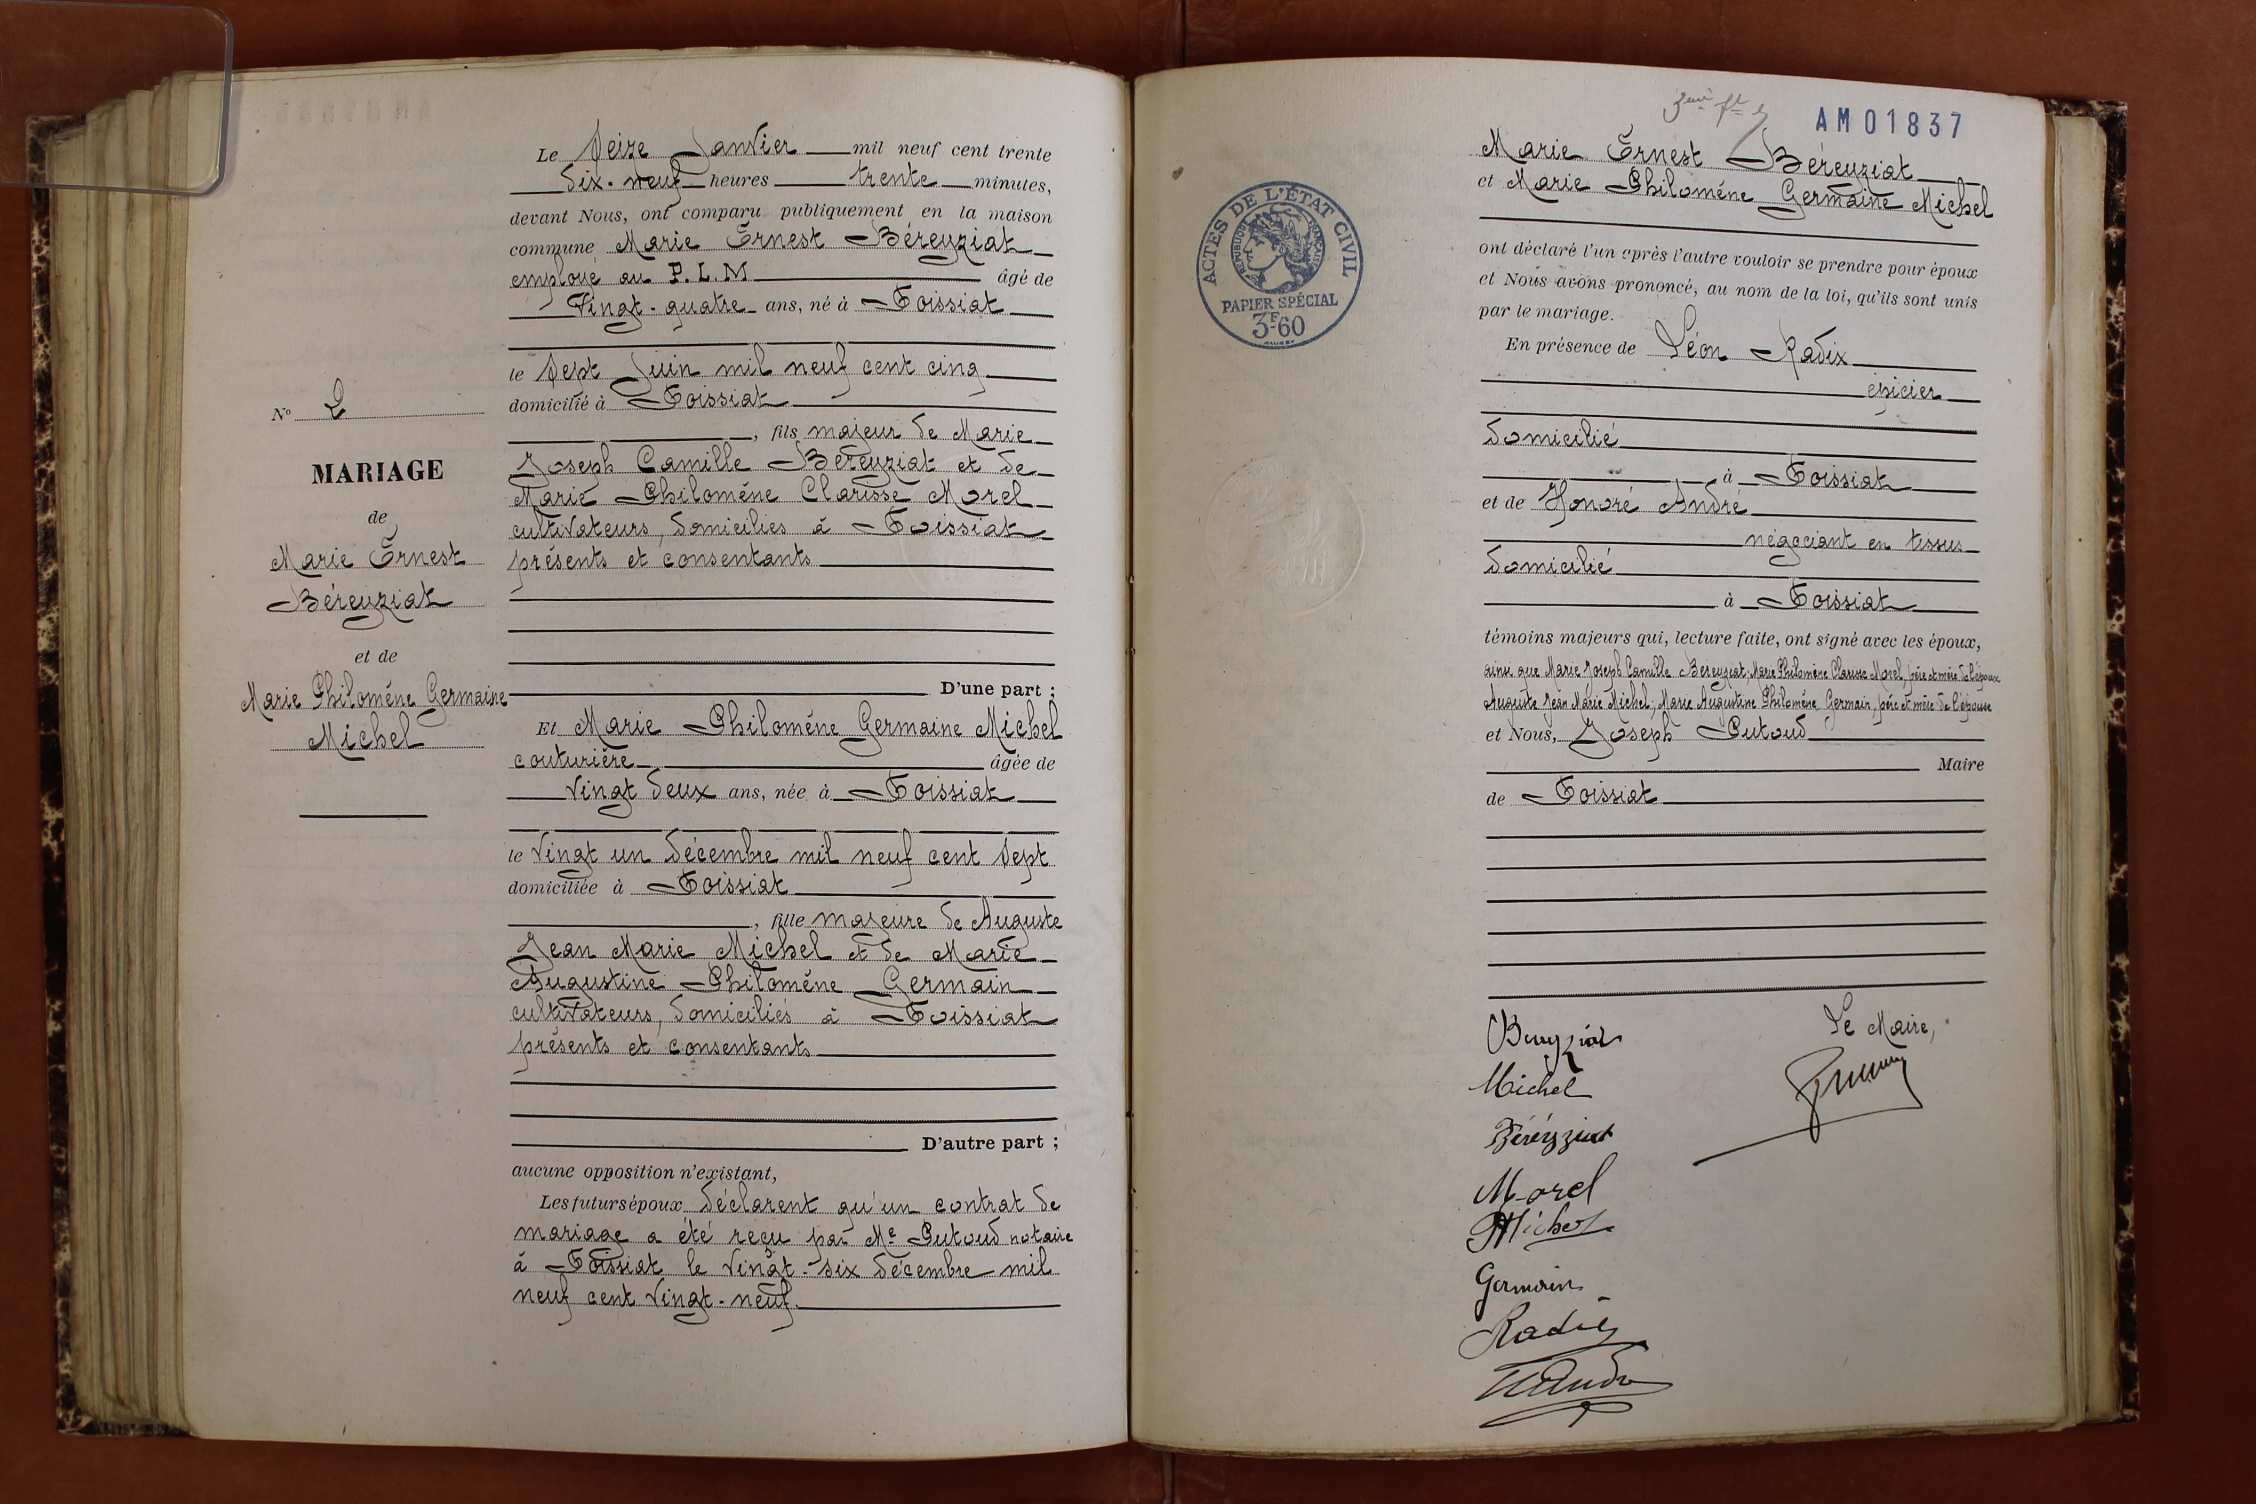 Le Seize Janvier mil neuf cent trente
dix-neuf heures trente minutes,
devant Nous, ont comparu publiquement en la maison
commune Marie Ernest Béreyziat
employé au P.L.M âgé de
Vingt-quatre ans, né à Foissiat
le Sept Juin mil neuf cent cinq
domicilié à Foissiat
, fils majeur de Marie
Joseph Camille Béreyziat et de
Marie Philomène Clarisse Morel
cultivateurs, domiciliés à Foissiat
présents et consentants
D'une part ;
Et Marie Philomène Germaine Michel
couturière âgée de
Vingt deux ans, née à Foissiat
le Vingt un décembre mil neuf cent Sept
domiciliée à Foissiat
, fille majeure de Auguste
Jean Marie Michel et de Marie
Augustine Philomène Germain
cultivateurs, domiciliés à Foissiat
présents et consentants
D'autre part ;
aucune opposition n'existant,
Les futurs époux déclarent qu'un contrat de
mariage a été reçu par Me Putoud notaire
à Foissiat le Vingt-six décembre mil
neuf cent Vingt-neuf.
No 2
MARIAGE
de
Marie Ernest
Béreyziat
et de
Marie Philomène Germaine
Michel
AM01837
Marie Ernest Béreyziat
et Marie Philomène Germaine Michel
ont déclaré l'un après l'autre vouloir se prendre pour époux
et Nous avons prononcé, au nom de la loi, qu'ils sont unis
par le mariage.
En présence de Léon Radix
épicier
domicilié
à Foissiat
et de Honoré André
négociant en tissus
domicilié
à Foissiat
témoins majeurs qui, lecture faite, ont signé avec les époux,
ainsi que Marie Joseph Camille Béreyziat, Marie Philomène Clarisse Morel, père et mère de l'époux
Auguste Jean Marie Michel, Marie Augustine Philomène Germain, père et mère de l'épouse
et Nous, Joseph Putoud
Maire
de Foissiat
ACTES DE L'ÉTAT CIVIL
RÉPUBLIQUE FRANÇAISE
PAPIER SPÉCIAL
3F60
Le Maire,
Bereyziat
Michel
Béréyziat
Morel
Michel
Germain
Radix